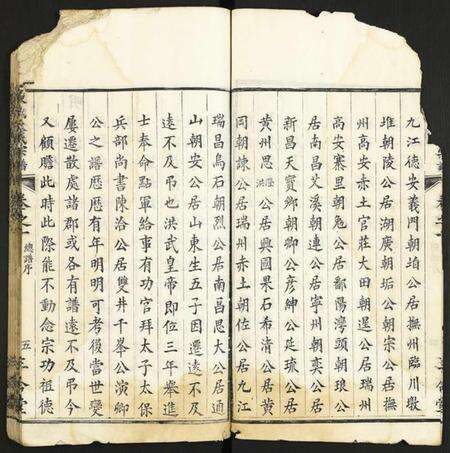 九江德安義門朝㙷公居撫州臨川墩
堆朝陵公居湖廣朝垢公朝宗公居撫
州高安赤土官莊大田朝逞公居瑞州
高安寨里朝兔公居鄱陽灣頭朝琅公
居南昌艾溪朝連公居寧州朝奕公居
新昌天寳鄉朝卿公彦紳公延琉公居
黄州思澄洪公居興國果石希清公居黄
岡朝諫公居瑞州赤土朝佐公居九江
瑞昌烏石朝烈公居南昌思大公居通
山朝安公居山東生五子因遷遠不及
遠不及弔也洪武皇帝即位三年舉進
士奉命點軍給事有功官拜太子太保
兵部尚書陳洽公居雙井千峯公演卿
公之譜歷歷有年明明可考後當世變
屢遷散處諸郡或各有譜遠不及弔今
又顧瞻此時此際能不動念宗功祖德
總譜序
五